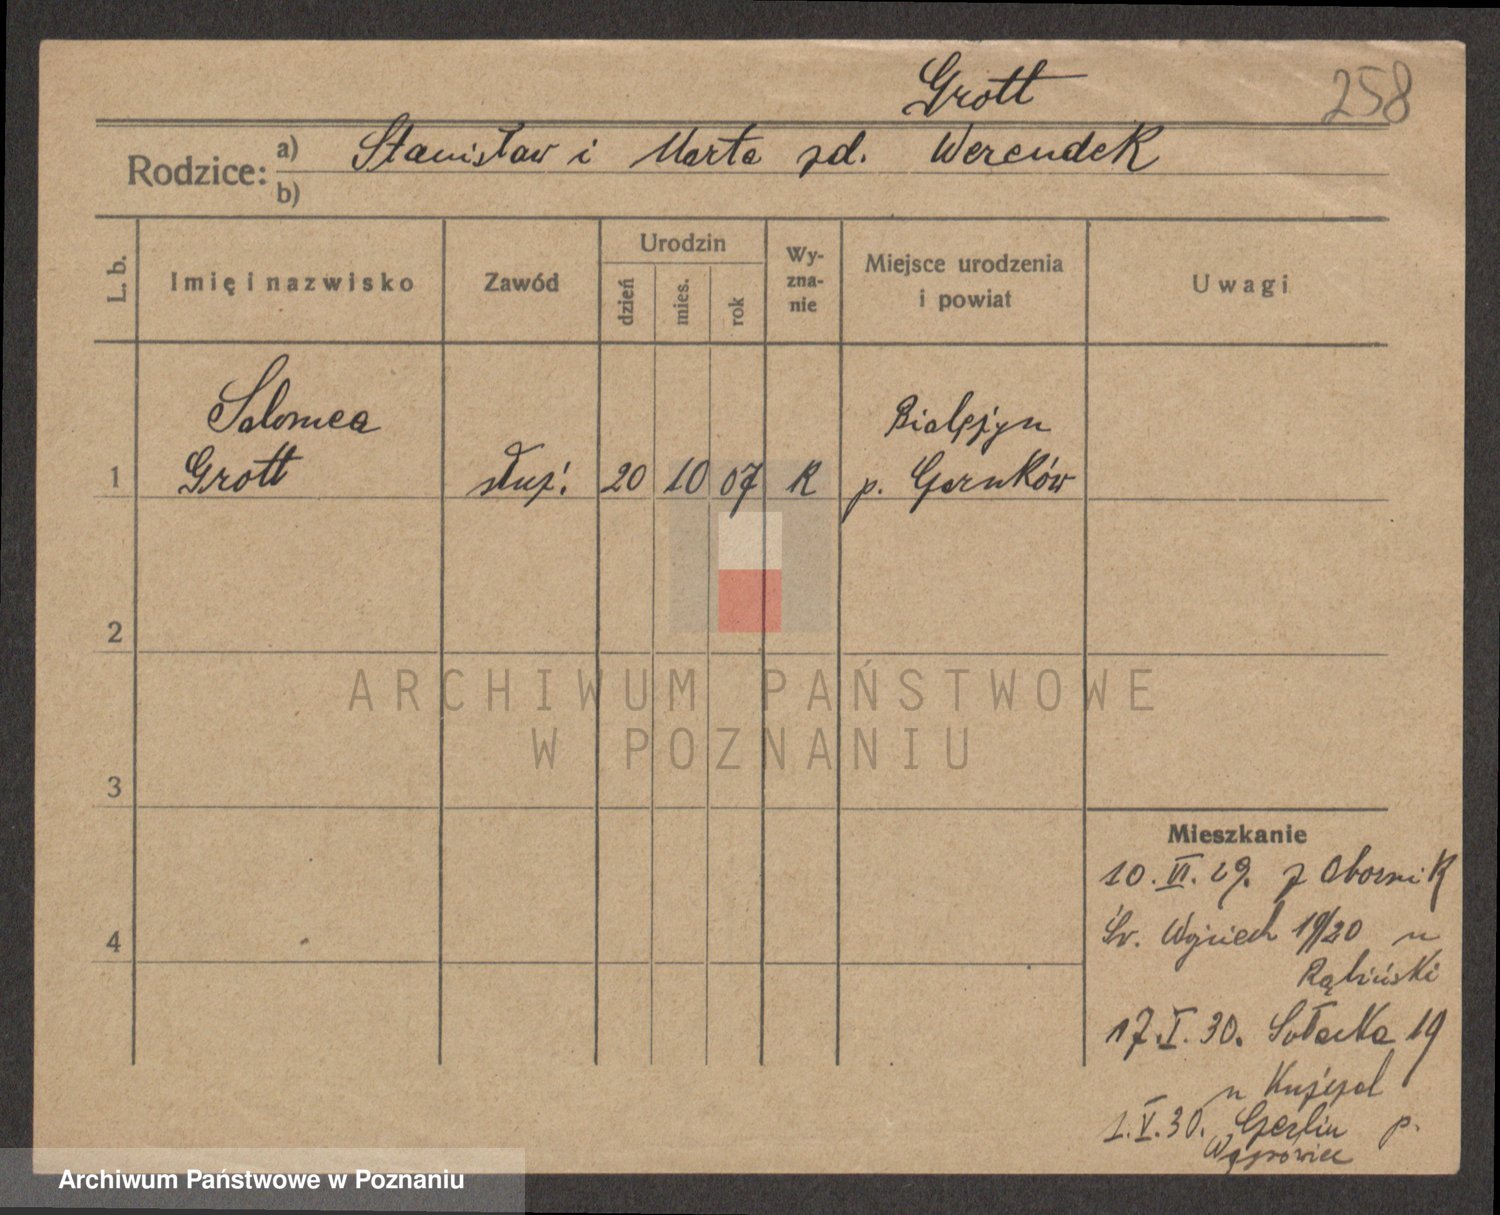 Grott
258
Rodzice: a) Stanisław i Marta zd. Werendek
b)
L. b. Imię i nazwisko Zawód Urodzin dzień mies. rok Wyznanie Miejsce urodzenia i powiat Uwagi
Salomea
Grott
1 służ. 20 10 07 R
p. Czarnków
2
3
4
Mieszkanie
10. VI. 29. z Obornik
Św. Wojciech 19/20 u
Rąbiński
17. I. 30. Sołacka 19
u
1. V. 30. p.
Wągrowiec
ARCHIWUM PAŃSTWOWE
W POZNANIU
Archiwum Państwowe w Poznaniu